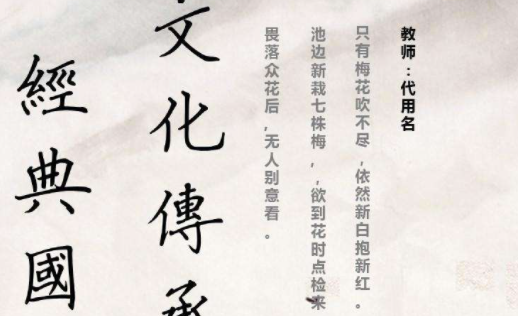 教师:代用名
只有梅花吹不尽,依然新白抱新红。
池边新栽七株梅,,欲到花时点检来
畏落众花后,无人别意看。
文化傳承
經典國